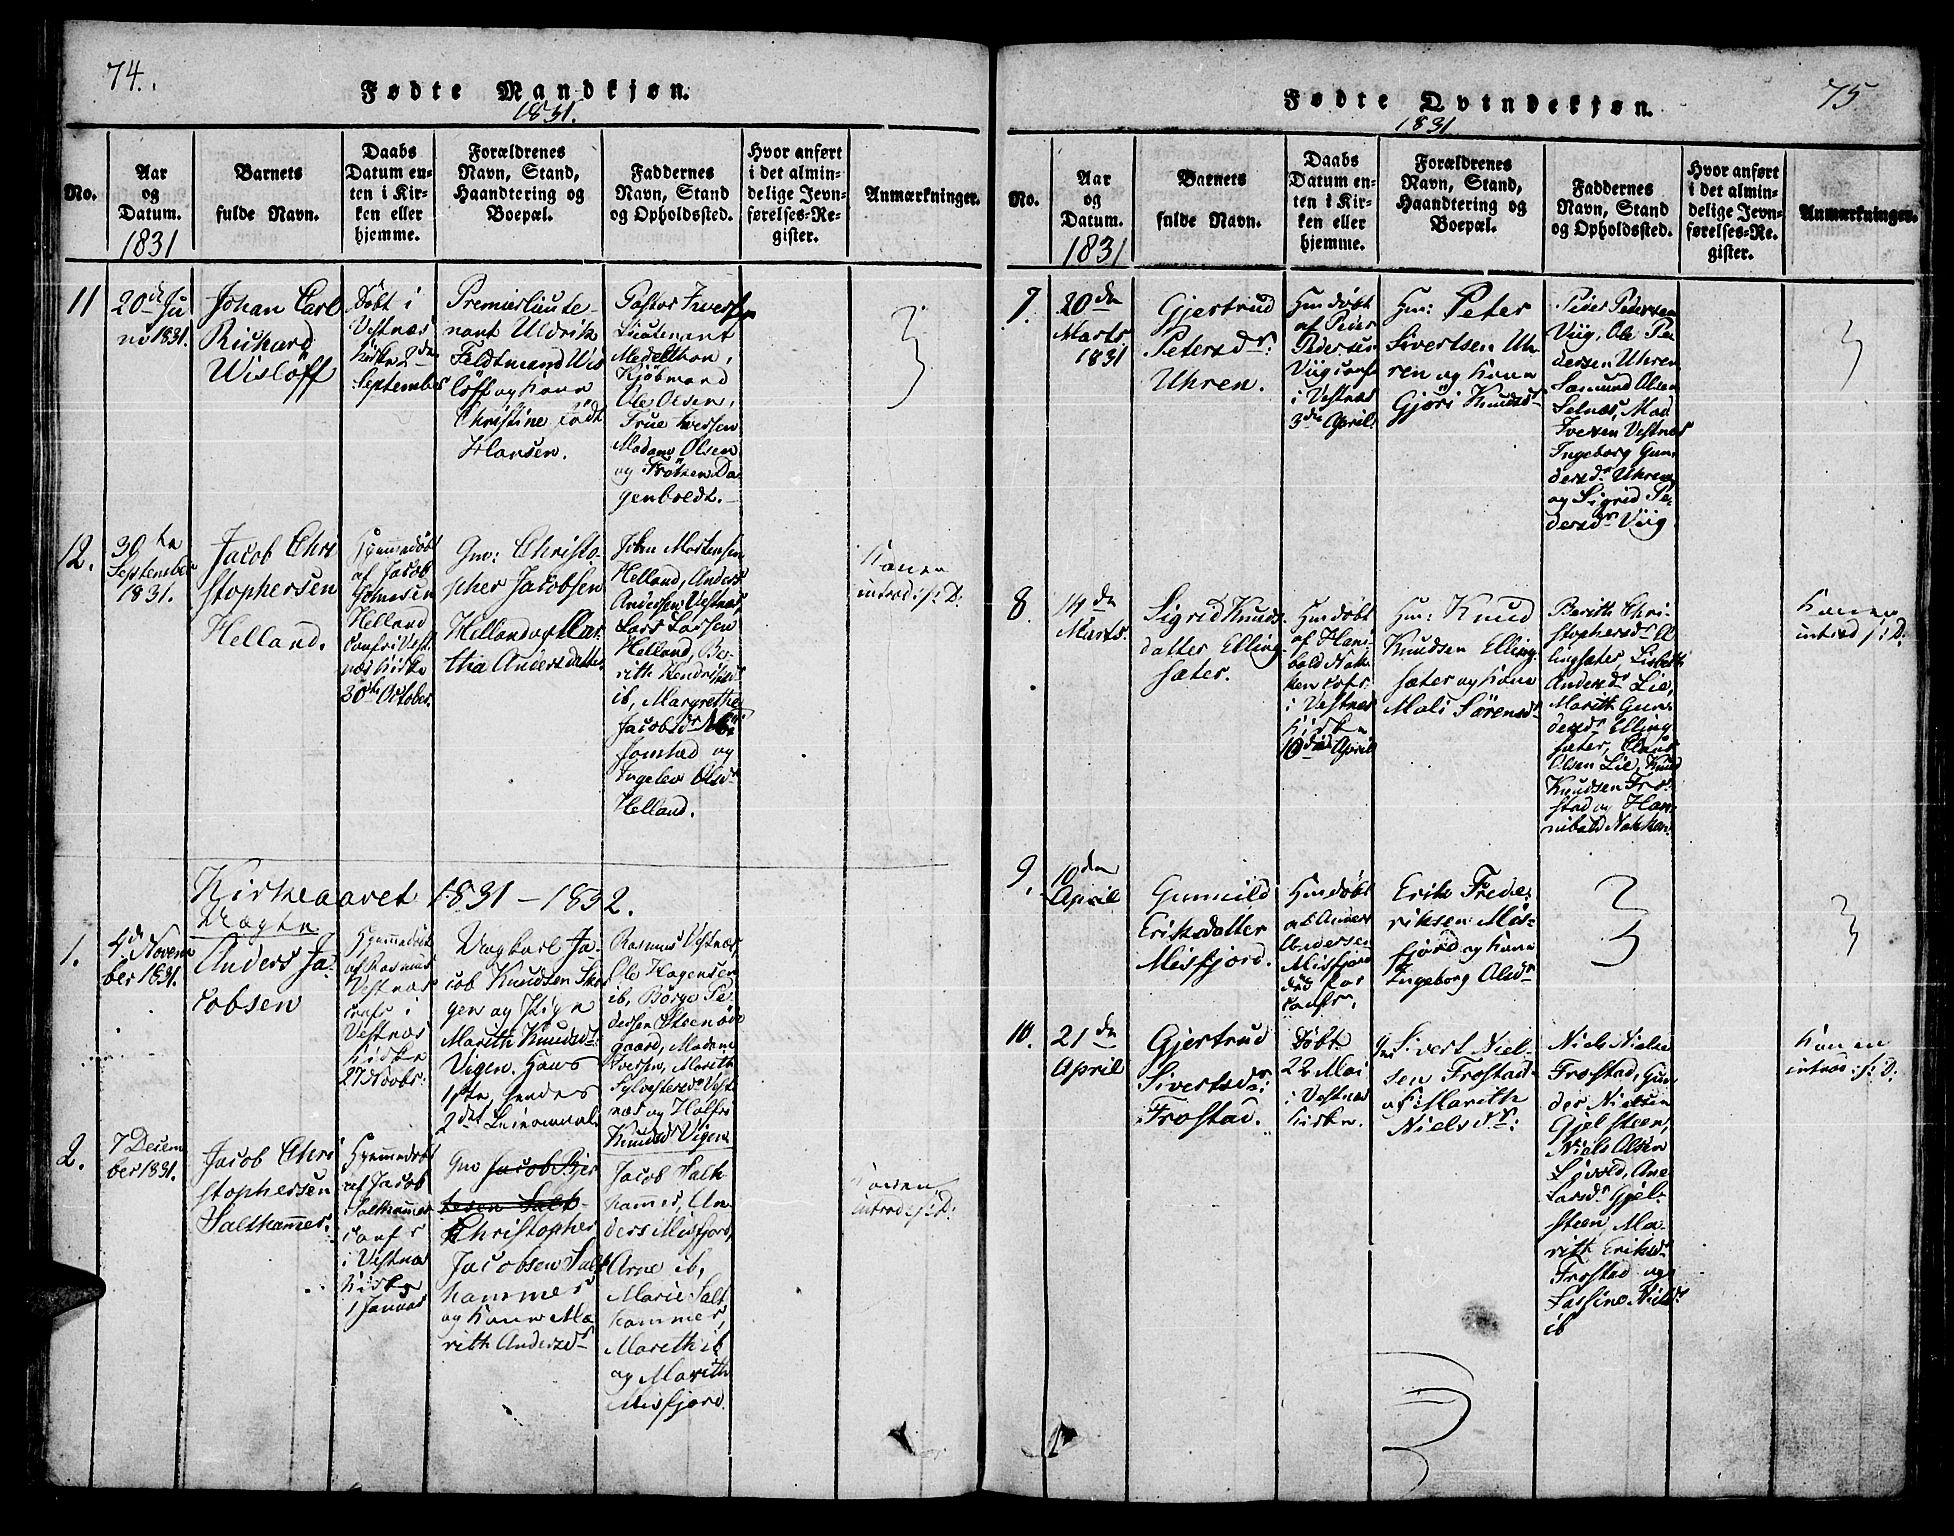 74.
Fødte Mandkjøn.
1831.
No.
Aar
og
Datum.
1831
Barnets
fulde Navn.
Daabs
Datum en-
ten i Kir-
ken eller
hjemme.
Forældrenes
Navn, Stand,
Haandtering og
Boepæl.
Faddernes
Navn, Stand
og Opholdssted.
Hvor anført
i det almin-
delige Jevn-
førelses-Re-
gister.
Anmærkninger.
11
20de Ju
ni 1831.
Johan Carl
Richard
Wisløff
Døbt i
Vestnæs
Kirke 2den
September
Premierlieute-
nant Uldrik
Feldtmand Wis
løff og Kone
Christine født
Hansen.
Pastor Iversen
Lieutenant
Medelthon,
Kjöbmand
Ole Olsen,
Frue Iversen
Madame Olsen
og Frøken Da
genboldt.
12.
30te
September
1831.
Jacob Chri
stophersen
Helland.
Hjemmedöbt
af Jacob
Helland
Confr i Vest
næs Kirke
30te October.
Gm: Christo-
pher Jacobsen
Helland og Mar
tha Andersdatter
John Mortensen
Helland, Anders
Andersen Vestnæs,
Lars Larsen
Helland, Be-
rith Hendriksd
ib, Margrethe
Jacobsdr
og
Ingelev Olsdr
Helland.
Konen
introd: f: D:
Kirkeaaret 1831 - 1832.
1.
4d Novem
ber 1831.
Uægte
Anders Ja-
cobsen
Hjemmedöbt
af Rasmus
Vestnæs
confr i
Vestnæs
Kirke
27 Novbr:
Ungkarl Ja-
cob Knudsen Sko
gen og Pige
Marith Knudsdr
Vigen. Hans
1ste, hendes
2det Leiermaal.
Rasmus Vestnæs,
Ole Hagensen
ib, Börge Pe-
dersen Steenöde
gaard, Madame
Iversen, Marith
Sylvestersdr Vest
næs og
Knudsdr Vigen
2.
7 Decem
ber 1831.
Jacob Chri
stophersen
Salthammer.
Hjemmedöbt
af Jacob
Salthammer
confr
i Vestnæs
Kirke
1 Januar
Gm Jacob
Salt-
Christopher
Jacobsen Salt
hammer
og Kone Ma
rith Andersdr
Jacob Salt
hammer, An
ders Misfjord,
Arne ib,
Marie Salt
hammer,
Marith ib
og Marith
Misfjord.
Konen
introd: f: D:
75
Fødte Qvindekjøn.
1831
No.
Aar
og
Datum.
1831
Barnets
fulde Navn.
Daabs
Datum en-
ten i Kir-
ken eller
hjemme.
Forældrenes
Navn, Stand,
Haandtering og
Boepæl.
Faddernes
Navn, Stand
og Opholdssted.
Hvor anført
i det almin-
delige Jevn-
førelses-Re-
gister.
Anmærkninger.
7.
20de
Marts
1831
Gjertrud
Petersdr:
Uhren.
Hmdøbt
af Peder
Pedersen
Viig confr
i Vestnæs
3die April
Hm: Peter
Sivertsen Uh-
ren og Kone
Gjøri Knudsdr
Peder Pedersen
Viig, Ole Pe-
dersen Uhren
Sæmund Olsen
Selnæs, Mad
Iversen Vestnæs
Ingeborg Gun-
dersdr Uhren
og Sigrid Pe-
dersdr Viig
8
14de
Marts.
Sigrid Knuds-
datter Elling-
sæter.
Hmdøbt
af Hani-
bald Nak-
ken confr
i Vestnæs
Kirke
10de April
Hm: Knud
Knudsen Elling-
sæter og Kone
Mali Sörensdr
Berith Chri-
stophersdr El
lingsæter, Lisbeth
Andersdr Lie,
Marith Gun-
dersdr Elling
sæter, Claus
Olsen Lie, Knud
Knudsen Fro-
stad og Han-
nibald Nakken
Konen
introd f: D:
9.
10de
April
Gunnild
Eriksdatter
Misfjord.
Hmdøbt
af Anders
Andersen
Misfjord
død før
confr.
Erik Frede-
riksen Mis-
fjord og Kone
Ingeborg Olsdr
10.
21de
April
Gjertrud
Sivertsdr:
Frostad.
Døbt
22 Mai
i Vestnæs
Kirke.
Gm Sivert Niel-
sen Frostad
og Marith
Nielsdr:
Niels Nielsen
Frostad, Gun
der Nielsen
Gjelsteen,
Niels Olsen
Lovold, Ane
Larsdr Gjel-
steen Ma-
rith Eriksdr
Frostad og
Nielsdr
ib
Konen
introd: f: D: